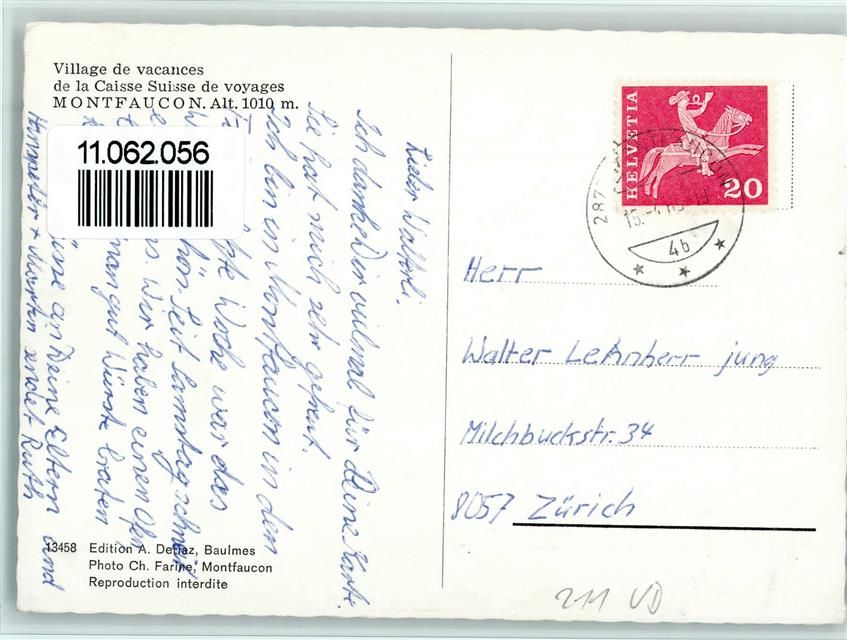 Village de vacances
de la Caisse Suisse de voyages
MONTFAUCON. Alt. 1010 m.
11.062.056
Lieber Walterli.
Ich danke Dir vielmal für Deine Karte.
Sie hat mich sehr gefreut.
Ich bin in Montfaucon in den
Woche war das
Seit Samstag schneit
Wir haben einen Ofen
man gut Würste braten
an Deine Eltern und
Hanspeter + Martin sendet Ruth
13458 Edition A. Deriaz, Baulmes
Photo Ch. Farine, Montfaucon
Reproduction interdite
HELVETIA
20
287
15.-4
4b
Herr
Walter Lehnherr jung
Milchbuckstr. 34
8057 Zürich
211 VD